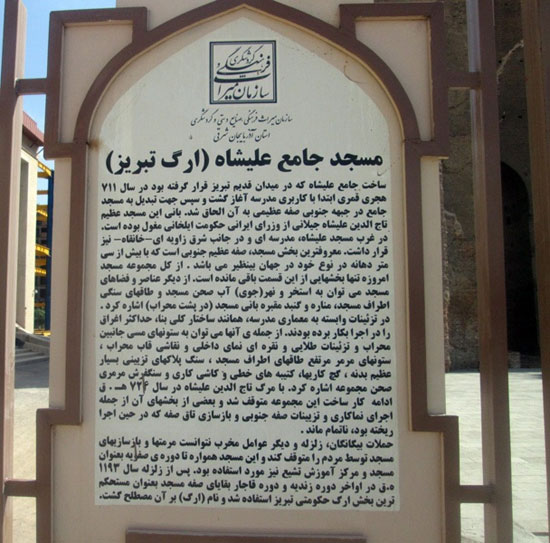 سازمان میراث فرهنگی گردشگری
سازمان میراث فرهنگی، صنایع دستی و گردشگری
استان آذربایجان شرقی
مسجد جامع علیشاه (ارگ تبریز)
ساخت جامع علیشاه که در میدان قدیم تبریز قرار گرفته بود در سال ۷۱۱
هجری قمری ابتدا با کاربری مدرسه آغاز گشت و سپس جهت تبدیل به مسجد
جامع در جبهه جنوبی صفه عظیمی به آن الحاق شد. بانی این مسجد عظیم
تاج الدین علیشاه جیلانی از وزرای ایرانی حکومت ایلخانی مغول بوده است.
در غرب مسجد علیشاه، مدرسه ای و در جانب شرق زاویه ای-خانقاه- نیز
قرار داشت. معروفترین بخش مسجد، صفه عظیم جنوبی است که با بیش از سی
متر دهانه در نوع خود در جهان بینظیر می باشد . از کل مجموعه مسجد
امروزه تنها بخشهایی از این قسمت باقی مانده است. از دیگر عناصر و فضاهای
مسجد می توان به استخر و نهر(جوی) آب صحن مسجد و طاقهای سنگی
اطراف مسجد، مناره و گنبد مقبره بانی مسجد (در پشت محراب) اشاره کرد .
در تزئینات وابسته به معماری مدرسه، همانند ساختار کلی بنا، حداکثر اغراق
را در اجرا بکار برده بودند. از جمله ی آنها می توان به ستونهای مسی جانبین
محراب و تزئینات طلایی و نقره ای نمای داخلی و نقاشی قاب محراب ،
ستونهای مرمر مرتفع طاقهای اطراف مسجد ، سنگ پلاکهای تزیینی بسیار
عظیم بدنه ، گچ کاریها، کتیبه های خطی و کاشی کاری و سنگفرش مرمری
صحن مجموعه اشاره کرد. با مرگ تاج الدین علیشاه در سال ۷۲۴ هـ. ق
ادامه کار ساخت این مجموعه متوقف شد و بعضی از بخشهای آن از جمله
اجرای نماکاری و تزیینات صفه جنوبی و بازسازی تاق صفه که در حین اجرا
ریخته بود، ناتمام ماند .
حملات بیگانگان، زلزله و دیگر عوامل مخرب نتوانست مرمتها و بازسازیهای
مسجد توسط مردم را متوقف کند و این مسجد همواره تا دوره ی صفویه بعنوان
مسجد و مرکز آموزش تشیع نیز مورد استفاده بود. پس از زلزله سال ۱۱۹۳
ه.ق در اواخر دوره زندیه و دوره قاجار بقایای صفه مسجد بعنوان مستحکم
ترین بخش ارگ حکومتی تبریز استفاده شد و نام (ارگ) بر آن مصطلح گشت.